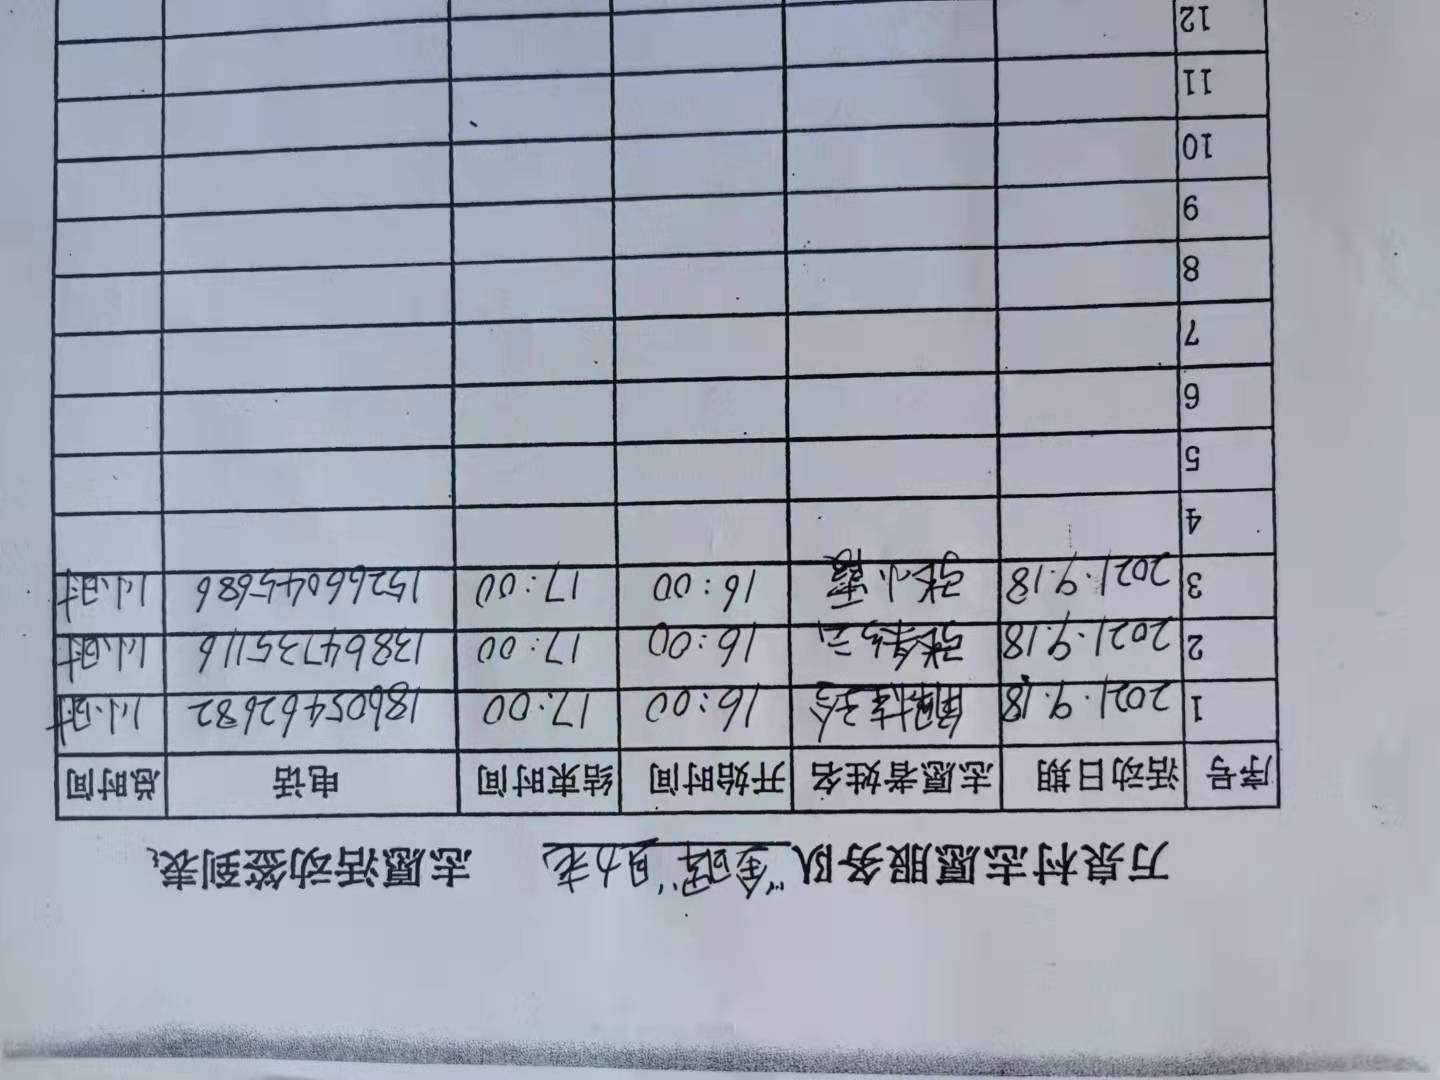 万泉村志愿服务队“金晖”助老 志愿活动签到表
序号 活动日期 志愿者姓名 开始时间 结束时间 电话 总时间
1 2021.9.18 16:00 17:00 18605462682 1小时
2 2021.9.18 16:00 17:00 13864735116 1小时
3 2021.9.18 张小霞 16:00 17:00 15266045686 1小时
4
5
6
7
8
9
10
11
12